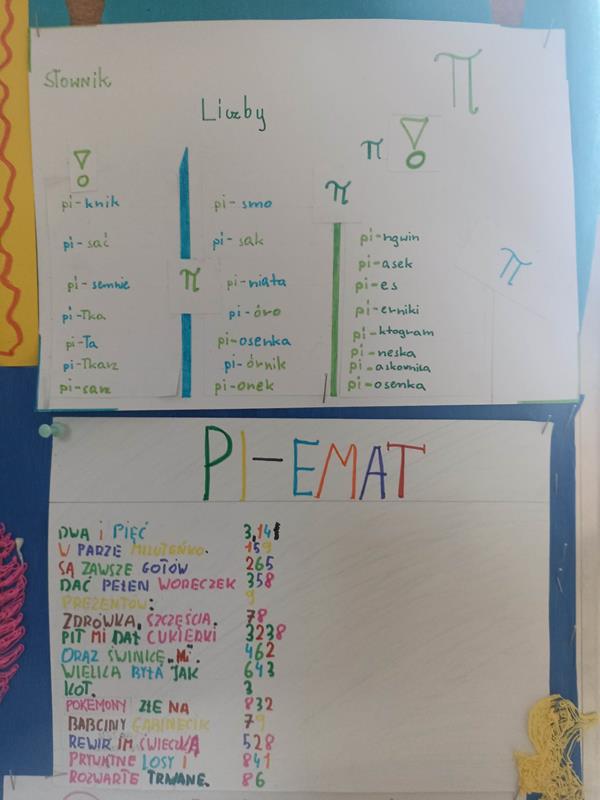 Słownik
Liczby
π
π
π
π
π
pi-knik
pi-sać
pi-semnie
pi-Tka
pi-Ta
pi-Tkarz
pi-sarz
pi-smo
pi-sak
pi-niata
pi-óro
pi-osenka
pi-órnik
pi-onek
pi-ngwin
pi-asek
pi-es
pi-erniki
pi-ktogram
pi-neska
pi-askownica
pi-osenka
PI-EMAT
DWA i PIĘĆ 3,141
W PARZE MILUTEŃKO. 159
SĄ ZAWSZE GOTÓW 265
DAĆ PEŁEN WORECZEK 358
PREZENTÓW: 9
ZDRÓWKA, SZCZĘŚCIA. 78
PIT MI DAŁ CUKIERKI 3238
ORAZ ŚWINKĘ „Mi". 462
WIELKA BYŁA JAK 643
KOT. 3
POKEMONY ZŁE NA 832
BABCINY GABINECIK 79
REWIR IM ŚWIECZKĄ 528
PRYWATNE LOSY I 841
ROZWARTE TRWANE. 86